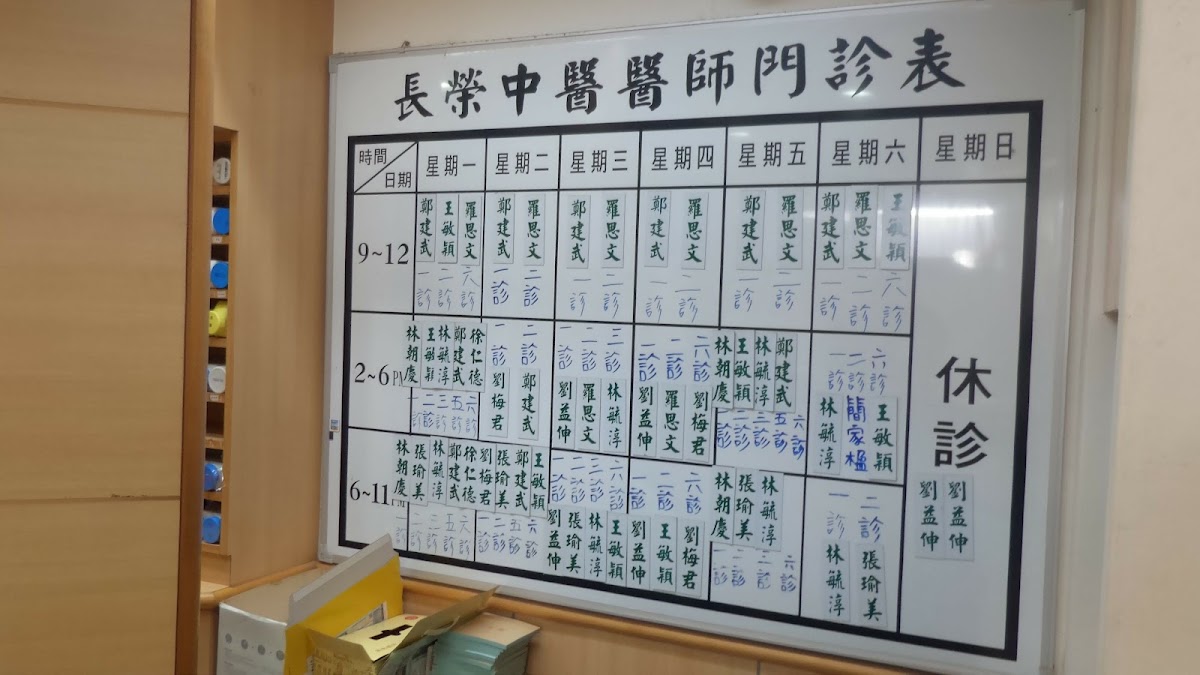 長榮中醫醫師門診表
時間 日期 星期一 星期二 星期三 星期四 星期五 星期六 星期日
9~12
鄭建武 王敏穎 羅思文
一診 二診 六診
鄭建武 羅思文
一診 二診
鄭建武 羅思文
一診 二診
鄭建武 羅思文
一診 二診
鄭建武 羅思文
一診 二診
鄭建武 羅思文 王敏穎
一診 二診 六診
休診
2~6PM
林朝慶 王敏穎 林毓淳 鄭建武 徐仁德
一診 二診 三診 五診 六診
一診 二診
劉梅君 鄭建武
一診 二診 三診
劉益伸 羅思文 林毓淳
一診 二診 六診
劉益伸 羅思文 劉梅君
林朝慶 王敏穎 林毓淳 鄭建武
一診 二診 三診 五診 六診
一診 二診 六診
林毓淳 簡家楹 王敏穎
6~11
林朝慶 張瑜美 林毓淳 鄭建武 徐仁德
一診 二診 三診 五診 六診
劉梅君 張瑜美 鄭建武 王敏穎
一診 二診 五診 六診
一診 二診 三診 六診
劉益伸 張瑜美 林毓淳 王敏穎
一診 二診 六診
劉益伸 王敏穎 劉梅君
林朝慶 張瑜美 林毓淳
一診 二診 三診 六診
一診 二診
林毓淳 張瑜美
劉益伸 劉益伸